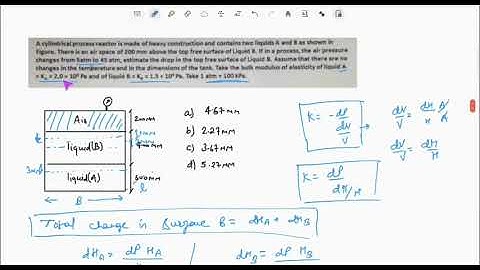 A cylindrical process reactor is made of heavy construction and contains two liquids A and B as shown in
Figure. There is an air space of 200 mm above the top free surface of Liquid B. If in a process, the air pressure
changes from 5atm to 45 atm, estimate the drop in the top free surface of Liquid B. Assume that there are no
changes in the temperature and in the dimensions of the tank. Take the bulk modulus of elasticity of liquid A
= K₁ = 2.0 × 10⁹ Pa and of liquid B = K₂ = 1.5 × 10⁹ Pa. Take 1 atm = 100 kPa.
P
Air
200mm
liquid(B)
liquid(A)
600mm
B
a) 4.67mm
b) 2.27mm
c) 3.67mm
d) 5.27mm
K = -dP
dV
V
dV/V = dH A/H A
dV/V = dH/H
K = dP
dH/H
Total change in Surface B = dHA + dHB
dHA = dP HA
dHB = dP HB